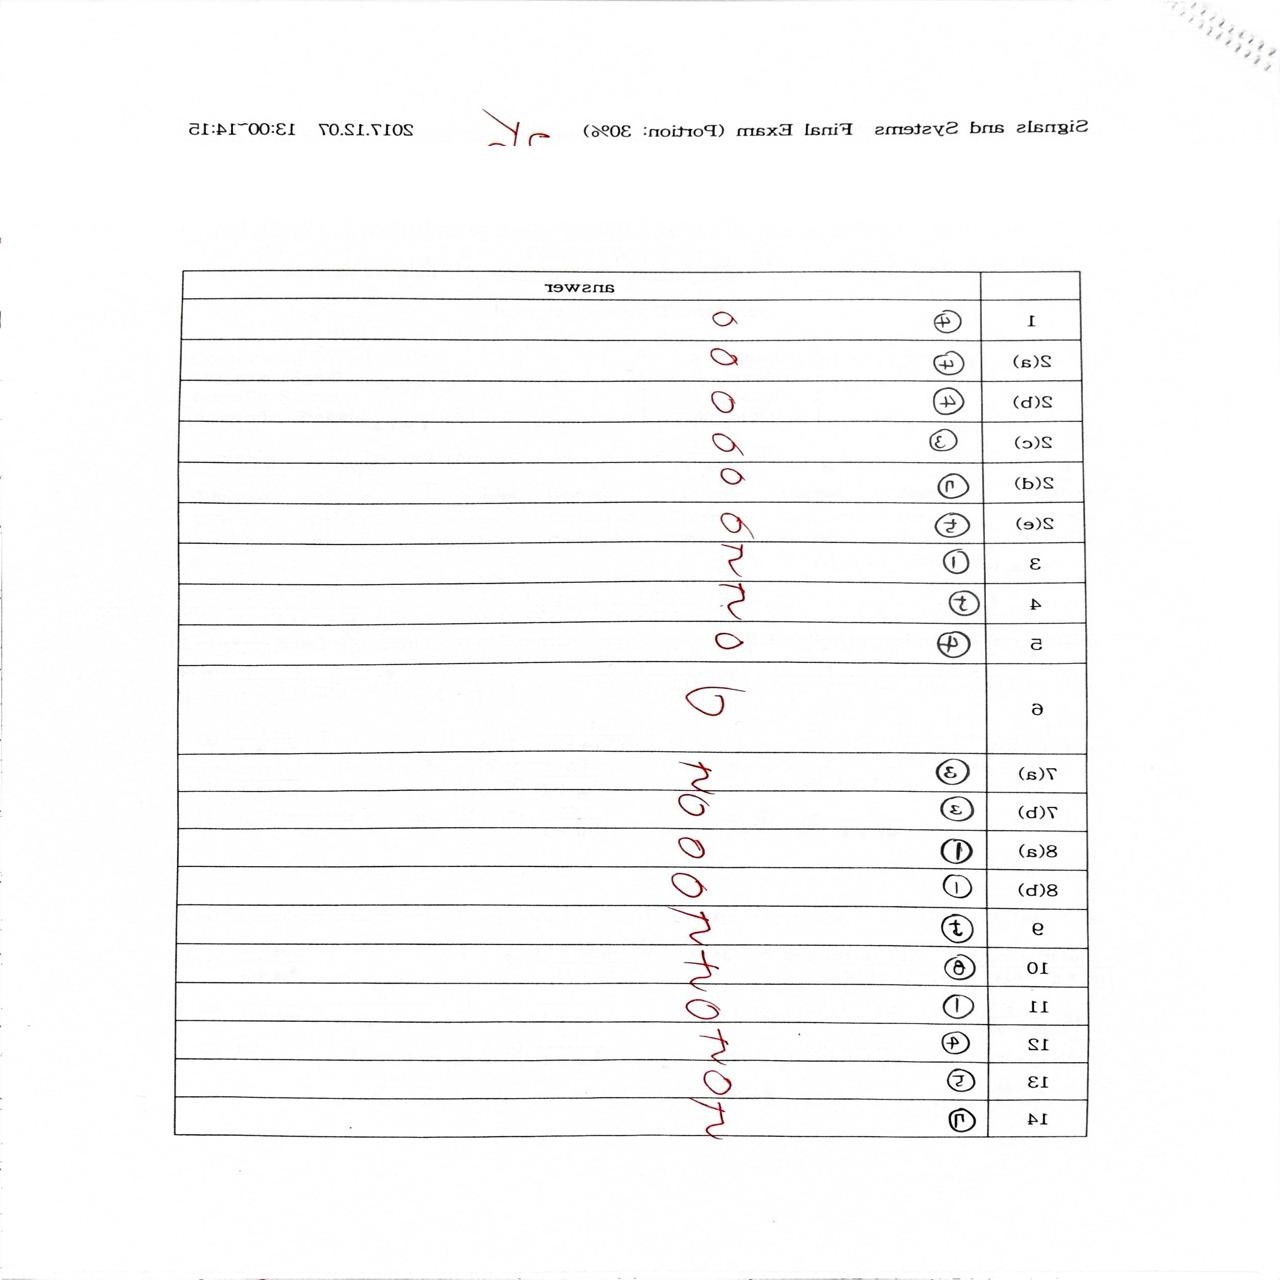 Signals and Systems Final Exam (Portion: 30%) 2017.12.07 13:00~14:15
answer
1 ④ O
2(a) ④ O
2(b) ④ O
2(c) ③ O
2(d) ⑦ O
2(e) ⑤ O
3 ①
4 ⑤
5 ④ O
6 O
7(a) ③
7(b) ③ O
8(a) ① O
8(b) ① O
9 ⑤
10 ⑧
11 ① O
12 ④
13 ⑤ O
14 ⑦